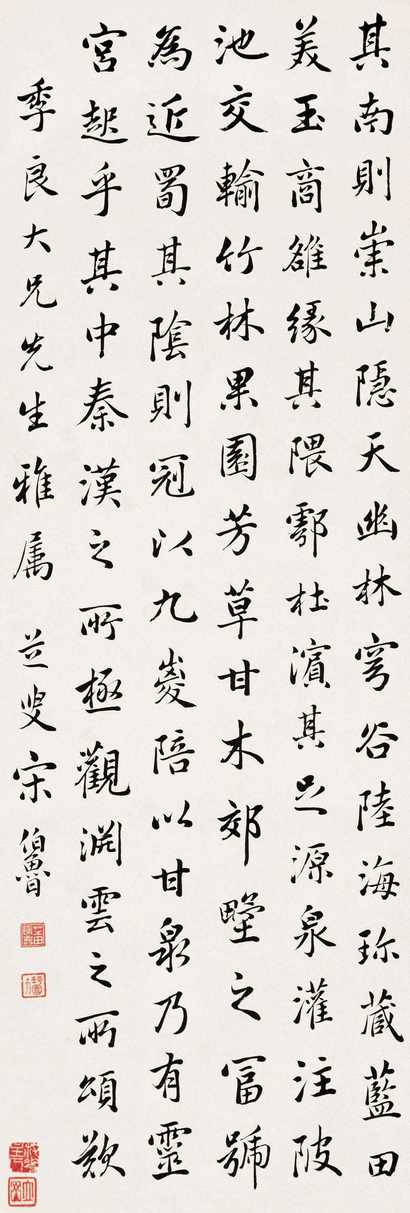 其南則崇山隱天幽林穹谷陸海珍藏藍田
美玉商雒緣其隈鄠杜濱其足源泉灌注陂
池交輸竹林果園芳草甘木郊壄之富號
為近蜀其陰則冠以九嵏陪以甘泉乃有靈
宮起乎其中秦漢之所極觀淵雲之所頌歎
季良大兄先生雅屬 芝叟宋伯魯